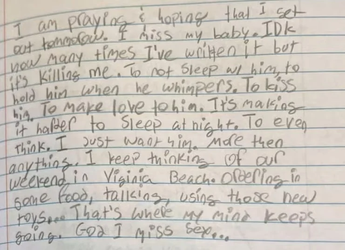 I am praying & hoping that I get
out tommolow. I miss my baby. IDK
how many times I've written it but
it's killing me. To not sleep w/ him, to
hold him when he whimpers. To kiss
him. To make love to him. It's making
it harder to sleep at night. To even
think. I Just want him. More then
anything. I keep thinking of our
weekend in Viginia Beach. Ordering in
some food, talking, using those new
toys... That's where my mind keeps
going. God I miss sex...